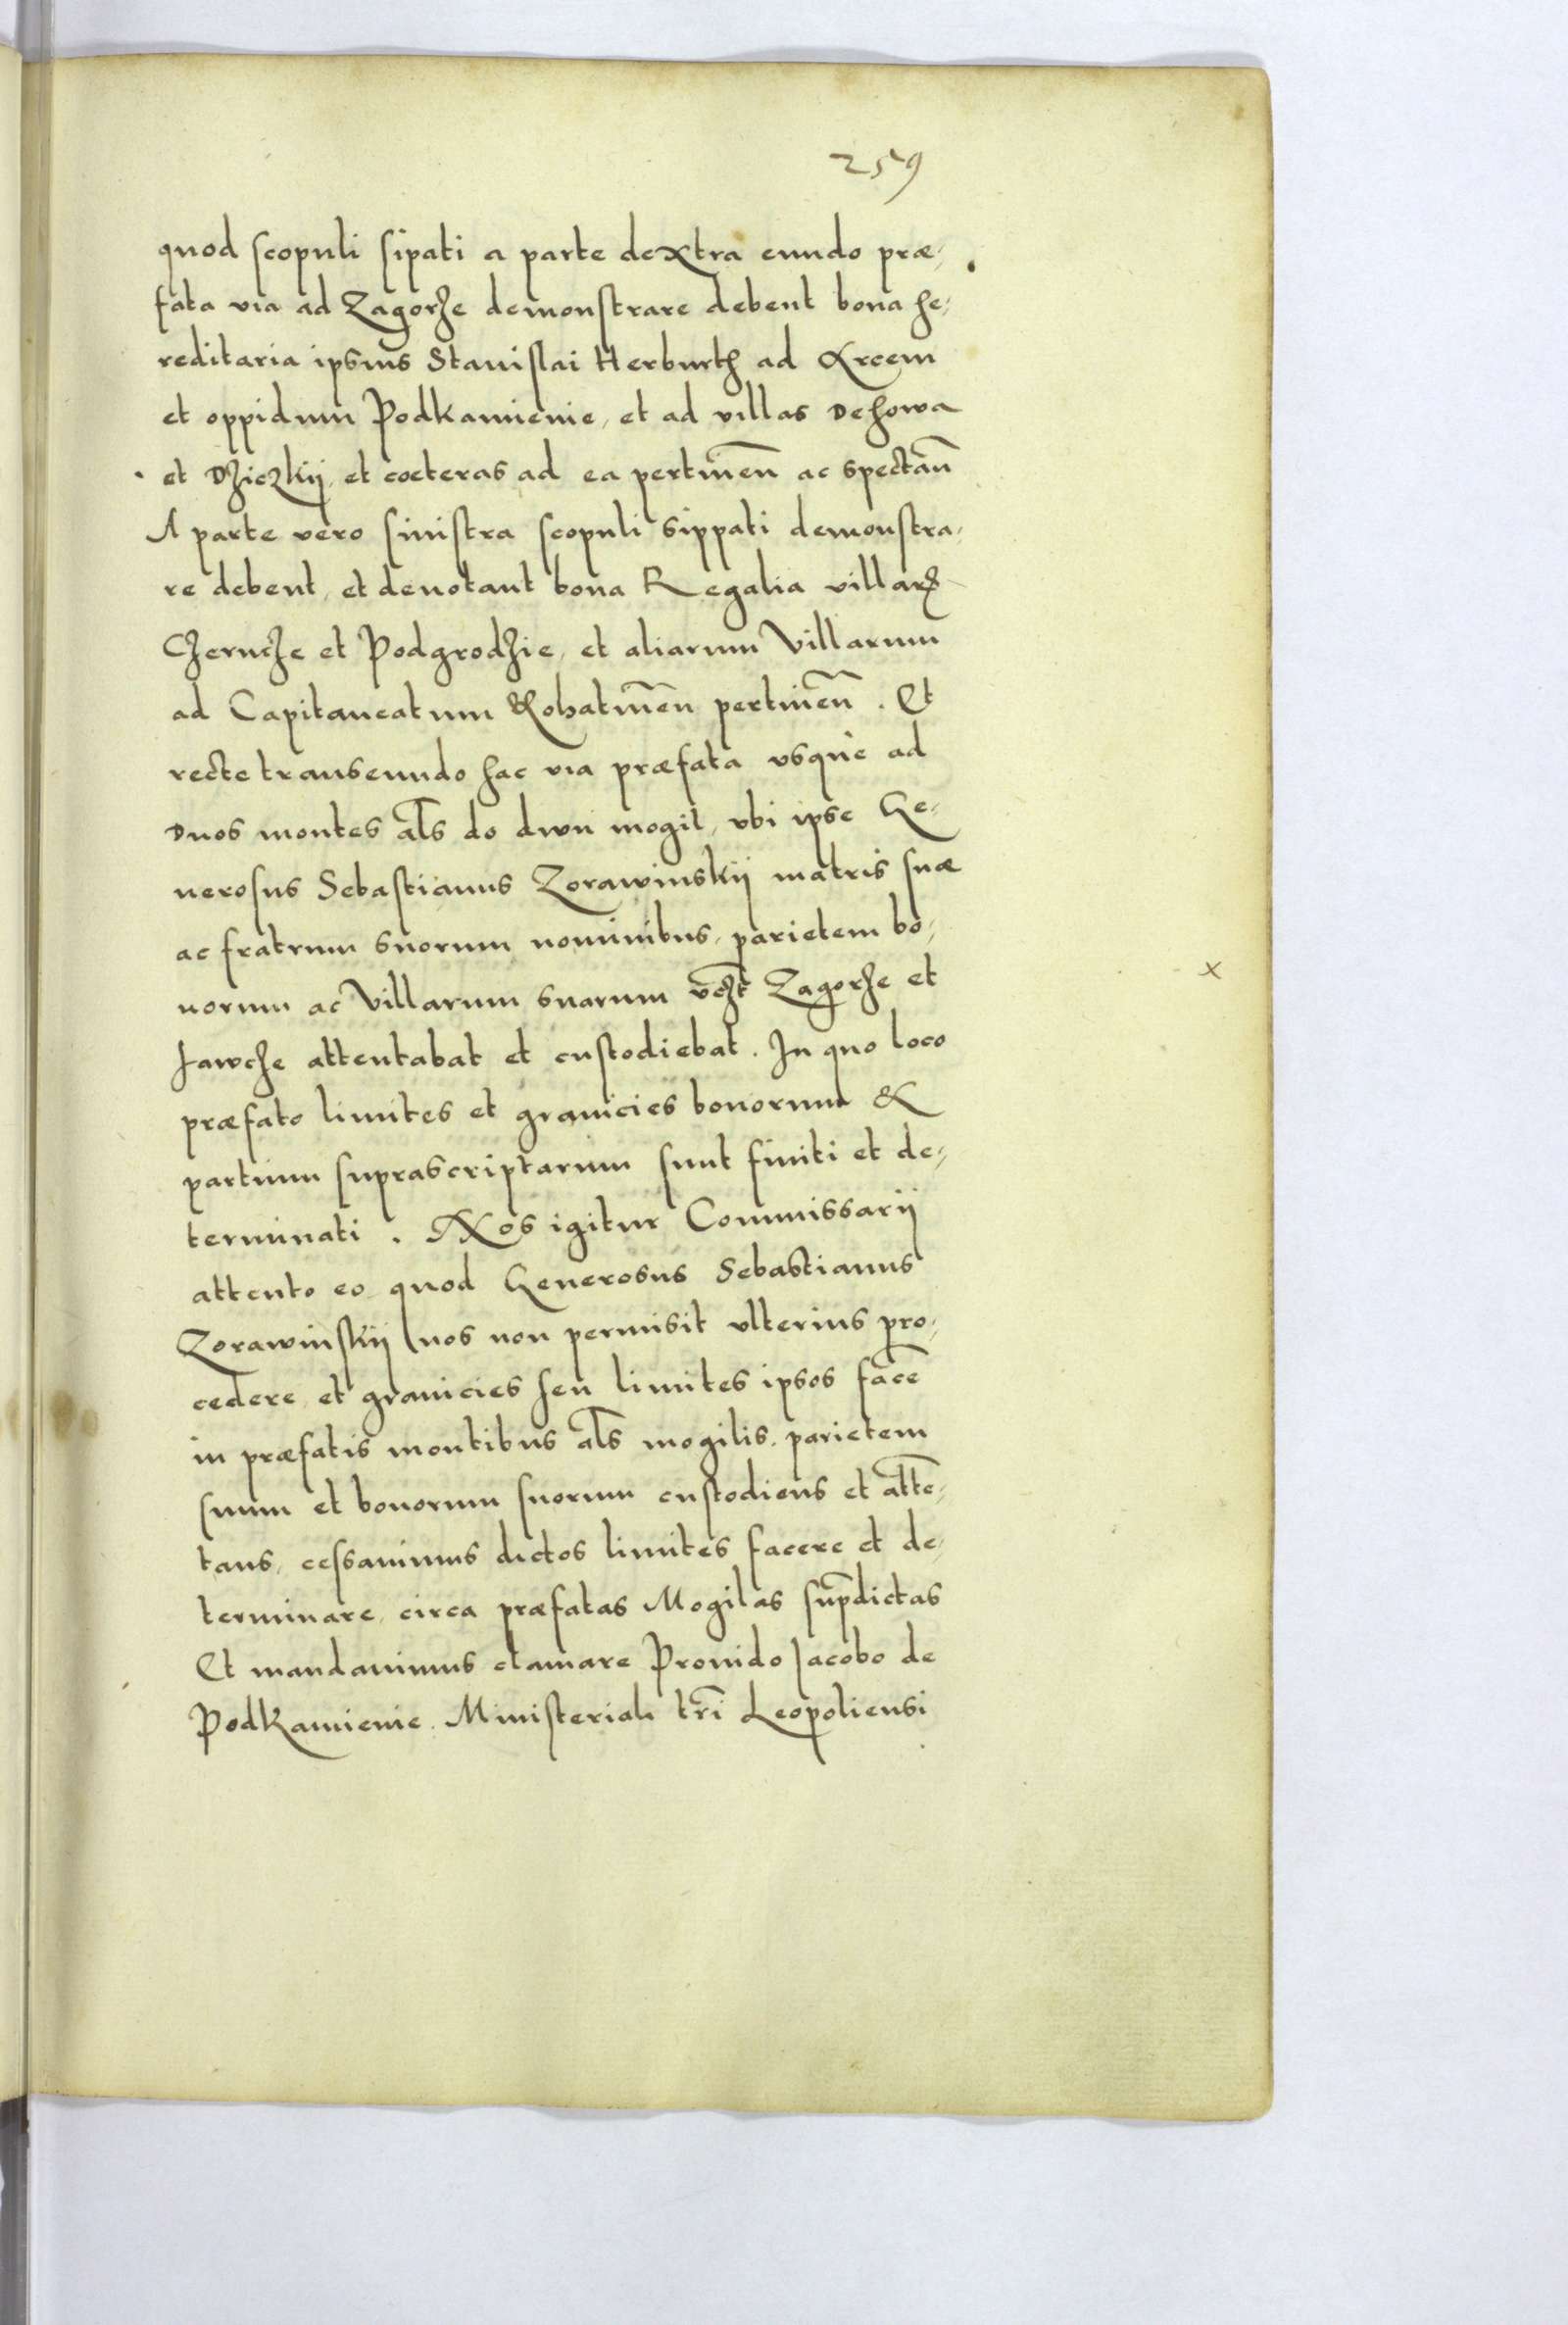 259
quod scopuli sipati a parte dextra eundo præ-
fata via ad Zagorże demonstrare debent bona he-
reditaria ipsius Stanislai Herburth ad Arcem
et oppidum Podkamienie, et ad villas Dehowa
et Dziczkij, et cœteras ad ea pertineñ ac spectañ
A parte vero sinistra scopuli sippati demonstra-
re debent, et denotant bona Regalia villarꝝ
Czercze et Podgrodzie, et aliarum Villarum
ad Capitaneatum Rohatineñ pertineñ. Et
recte transeundo hac via præfata vsque ad
Duos montes als do dwu mogil, vbi ipse Ge-
nerosus Sebastianus Zorawinskij matris suæ
ac fratrum suorum nominibus, parietem bo-
norum ac Villarum suarum vczt Zagorze et
Jawcze attentabat et custodiebat. In quo loco
præfato limites et granicies bonorum &
partium suprascriptarum sunt finiti et de-
terminati. Nos igitur Commissarij
attento eo quod Generosus Sebastianus
Zorawinskij nos non permisit vlterius pro-
cedere et granicies seu limites ipsos facē
in præfatis montibus als mogilis, parietem
suum et bonorum suorum custodiens et attē-
tans, cessauimus dictos limites facere et de-
terminare, circa præfatas Mogilas sup̄dictas
Et mandauimus clamare Prouido Jacobo de
Podkamienie Ministeriali tr̄i Leopoliensi
x